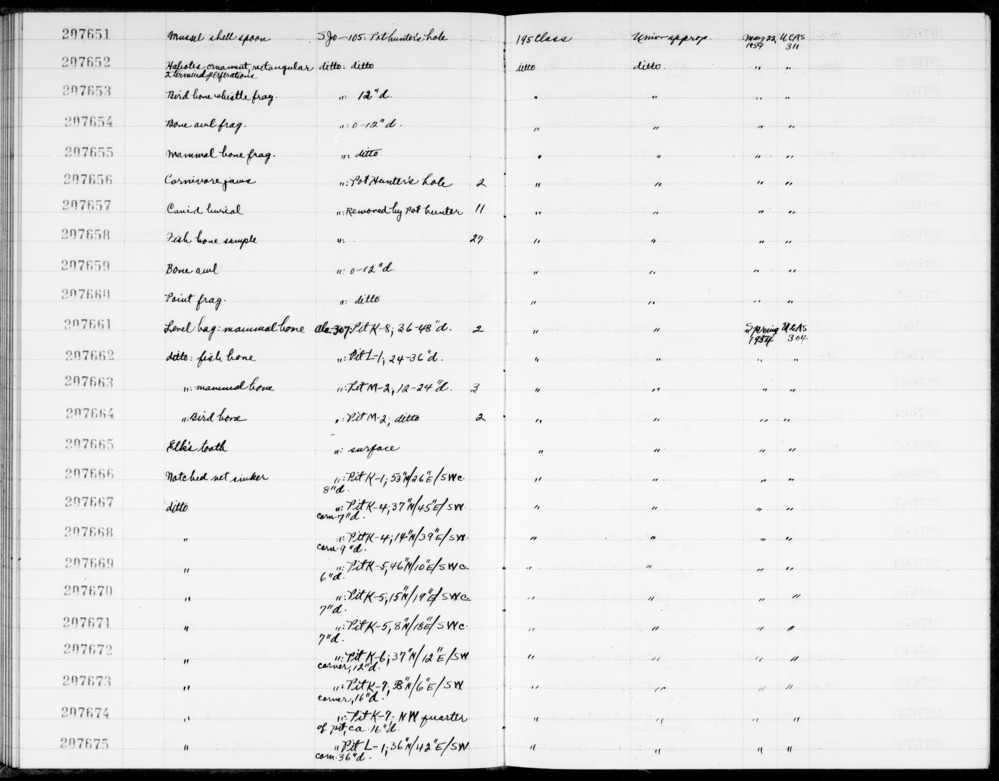 207651 Mussel shell spoon SJo-105: Pot hunter's hole 195 Class Univ approp. May 22, UCAS
1954 311
207652 Haliotis ornament, rectangular ditto: ditto ditto ditto " "
2 terminal perforations
207653 Bird bone whistle frag. ": 12"d. " " " "
207654 Bone awl frag. ": 0-12"d. " " " "
207655 Mammal bone frag. ": ditto " " " "
207656 Carnivore jaws ": Pot Hunter's hole 2 " " " "
207657 Canid burial ": Removed by Pot hunter 11 " " " "
207658 Fish bone sample ": 27 " " " "
207659 Bone awl ": 0-12"d. " " " "
207660 Point frag. ": ditto " " " "
207661 Level bag: mammal bone Ala-307: Pit K-8; 36-48"d. 2 " " Spring UCAS
1954 304
207662 ditto: fish bone ": Pit L-1; 24-36"d. " " " "
207663 ": mammal bone ": Pit M-2; 12-24"d. 3 " " " "
207664 ": Bird bone ": Pit M-2; ditto 2 " " " "
207665 Elk's tooth ": surface " " " "
207666 Notched net sinker ": Pit K-1; 53"N/26"E/SWc. " " " "
8"d.
207667 ditto ": Pit K-4; 37"N/45"E/SW " " " "
corn. 7"d.
207668 " ": Pit K-4; 14"N/39"E/SW " " " "
corn. 9"d.
207669 " ": Pit K-5, 46"N/10"E/SWc. " " " "
6"d.
207670 " ": Pit K-5, 15"N/19"E/SWc. " " " "
7"d.
207671 " ": Pit K-5, 8"N/18"E/SWc. " " " "
7"d.
207672 " ": Pit K-6; 37"N/12"E/SW " " " "
corner, 12"d.
207673 " ": Pit K-7, 38"N/6"E/SW " " " "
corner, 16"d.
207674 " ": Pit K-7; NW quarter " " " "
of pit, ca. 16"d.
207675 " ": Pit L-1; 36"N/42"E/SW " " " "
corn. 36"d.